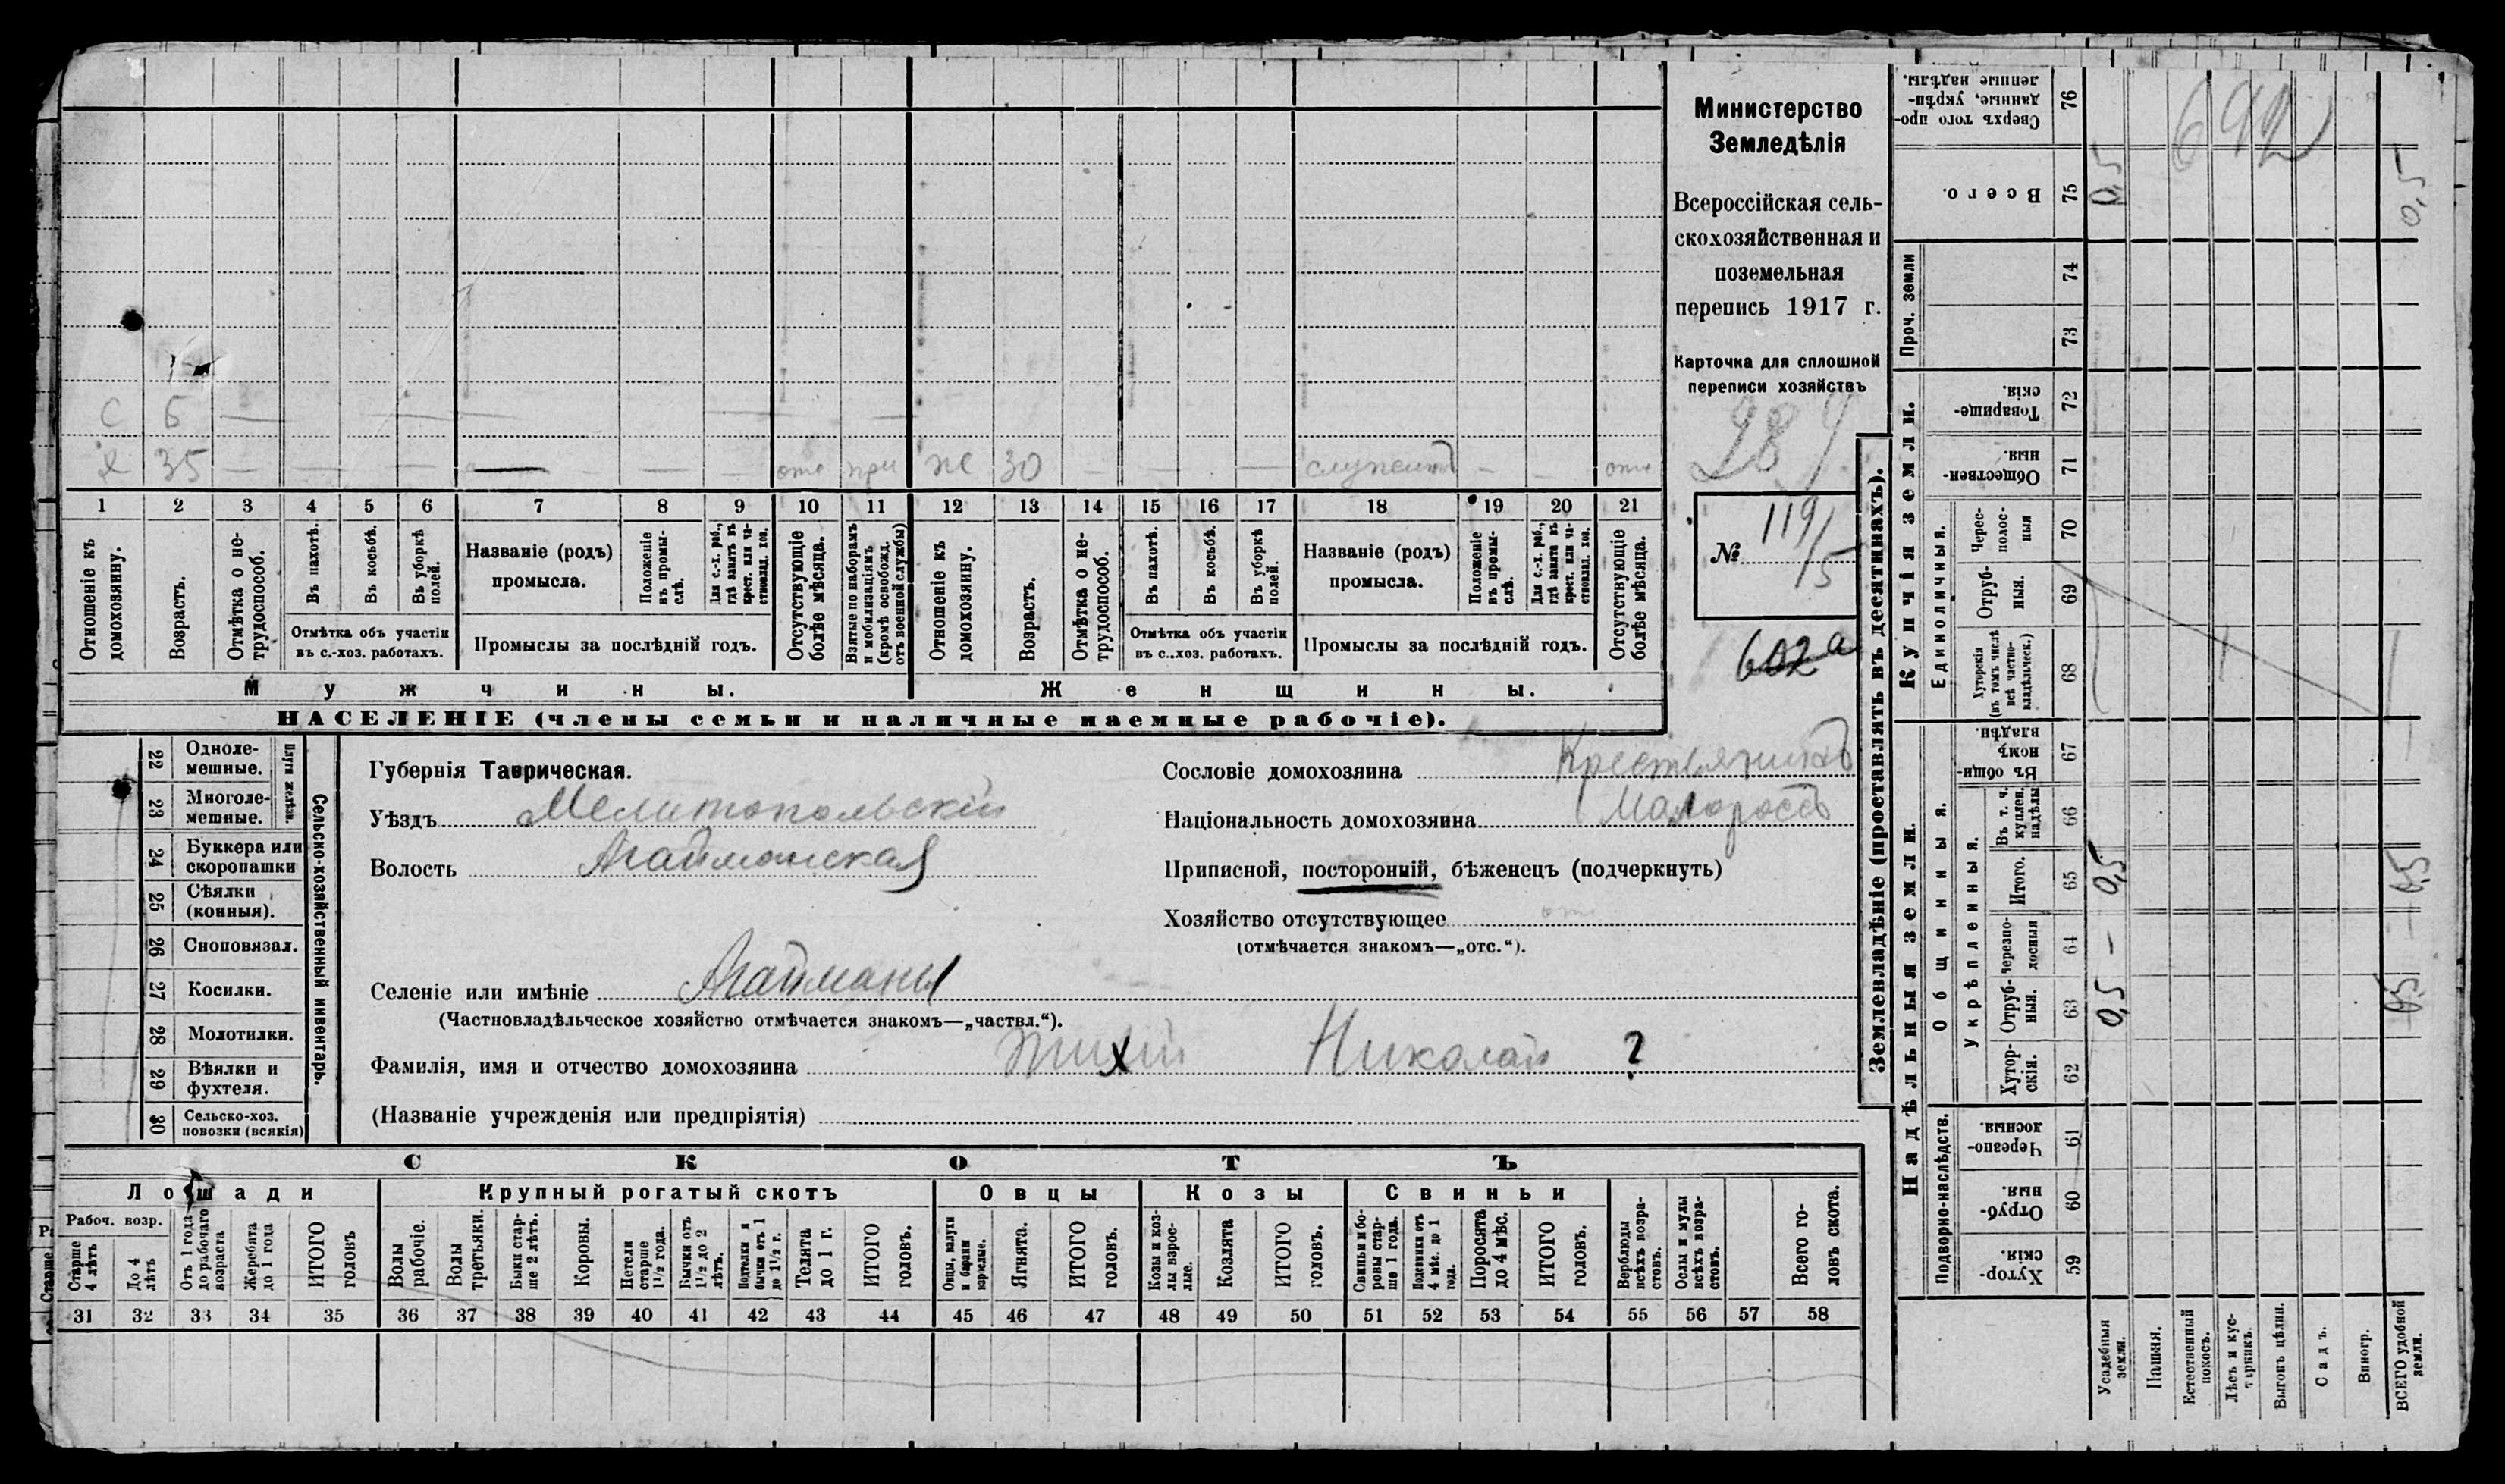 Министерство
Земледѣлія
Всероссійская сель-
скохозяйственная и
поземельная
перепись 1917 г.
Карточка для сплошной
переписи хозяйствъ
284
№ 119/5
602а
С 5 — — —
Я 35 — — — — — — отс при Ж 30 — — — служит — — отс
1 2 3 4 5 6 7 8 9 10 11 12 13 14 15 16 17 18 19 20 21
Отношеніе къ домохозяину.
Возрастъ.
Отмѣтка о не-трудоспособ.
Въ пахотѣ.
Въ косьбѣ.
Въ уборкѣ полей.
Отмѣтка объ участіи
въ с.-хоз. работахъ.
Названіе (родъ)
промысла.
Положеніе въ промы-слѣ.
Для с.-х. раб., гдѣ занятъ въ крест. или ча-стновлад. хоз.
Промыслы за послѣдній годъ.
Отсутствующіе болѣе мѣсяца.
Взятые по наборамъ и мобилизаціямъ (кромѣ освобожд. отъ военной службы)
Отношеніе къ домохозяину.
Возрастъ.
Отмѣтка о не-трудоспособ.
Въ пахотѣ.
Въ косьбѣ.
Въ уборкѣ полей.
Отмѣтка объ участіи
въ с..хоз. работахъ.
Названіе (родъ)
промысла.
Положеніе въ промы-слѣ.
Для с.-х. раб., гдѣ занята въ крест. или ча-стновлад. хоз.
Промыслы за послѣдній годъ.
Отсутствующіе болѣе мѣсяца.
Мужчины.
Женщины.
НАСЕЛЕНІЕ (члены семьи и наличные наемные рабочіе).
22 Одноле-
мешные.
23 Многоле-
мешные.
Плуги желѣзн.
24 Буккера или
скоропашки
25 Сѣялки
(конныя).
26 Сноповязал.
27 Косилки.
28 Молотилки.
29 Вѣялки и
фухтеля.
30 Сельско-хоз.
повозки (всякія)
Сельско-хозяйственный инвентарь.
Губернія Таврическая.
Уѣздъ Мелитопольскій
Волость Агайманская
Селеніе или имѣніе Агайманы
(Частновладѣльческое хозяйство отмѣчается знакомъ—„частвл.“).
Фамилія, имя и отчество домохозяина Тихій Николай ?
(Названіе учрежденія или предпріятія)
Сословіе домохозяина Крестьянинъ
Національность домохозяина Малороссъ
Приписной, посторонній, бѣженецъ (подчеркнуть)
Хозяйство отсутствующее отс
(отмѣчается знакомъ—„отс.“).
СКОТЪ
Лошади
Крупный рогатый скотъ
Овцы
Козы
Свиньи
Рабоч. возр.
Старше 4 лѣтъ
До 4 лѣтъ
Отъ 1 года до рабочаго возраста
Жеребята до 1 года
ИТОГО головъ
Волы рабочіе.
Волы третьяки.
Быки стар-ше 2 лѣтъ.
Коровы.
Нетели старше 1½ года.
Бычки отъ 1½ до 2 лѣтъ.
Нетелки и бычки отъ 1 до 1½ г.
Телята до 1 г.
ИТОГО головъ.
Овцы, валухи и бараны взрослые.
Ягнята.
ИТОГО головъ.
Козы и коз-лы взрос-лые.
Козлята
ИТОГО головъ.
Свиньи и бо-ровы стар-ше 1 года.
Подсвинки отъ 4 мѣс. до 1 года.
Поросята до 4 мѣс.
ИТОГО головъ.
Верблюды всѣхъ возра-стовъ.
Ослы и мулы всѣхъ возра-стовъ.
Всего го-ловъ скота.
31 32 33 34 35 36 37 38 39 40 41 42 43 44 45 46 47 48 49 50 51 52 53 54 55 56 57 58
Землевладѣніе (проставлять въ десятинахъ).
Надѣльныя земли.
Купчія земли.
Проч. земли
Подворно-наслѣдств.
Общинныя.
Укрѣпленныя.
Единоличныя.
Хутор-скія. 59
Отруб-ныя. 60
Черезпо-лосныя. 61
Хутор-скія. 62
Отруб-ныя. 63
черезпо-лосныя 64
Итого. 65
Въ т. ч. куплен. надѣлы 66
Въ общин-номъ владѣн. 67
Хуторскія (въ томъ числѣ всѣ частно-владѣльческ.) 68
Отруб-ныя. 69
Черес-полос-ныя 70
Обществен-ныя. 71
Товарище-скія. 72
73
74
Всего. 75
Сверхъ того про-данные, укрѣп-ленные надѣлы. 76
Усадебныя земли. 0,5 — 0,5 0,5
Пашня.
Естественный покосъ.
Лѣсъ и кус-тарникъ.
Выгонъ цѣлин.
Садъ.
Виногр.
ВСЕГО удобной земли. 0,5 — 0,5 0,5
692